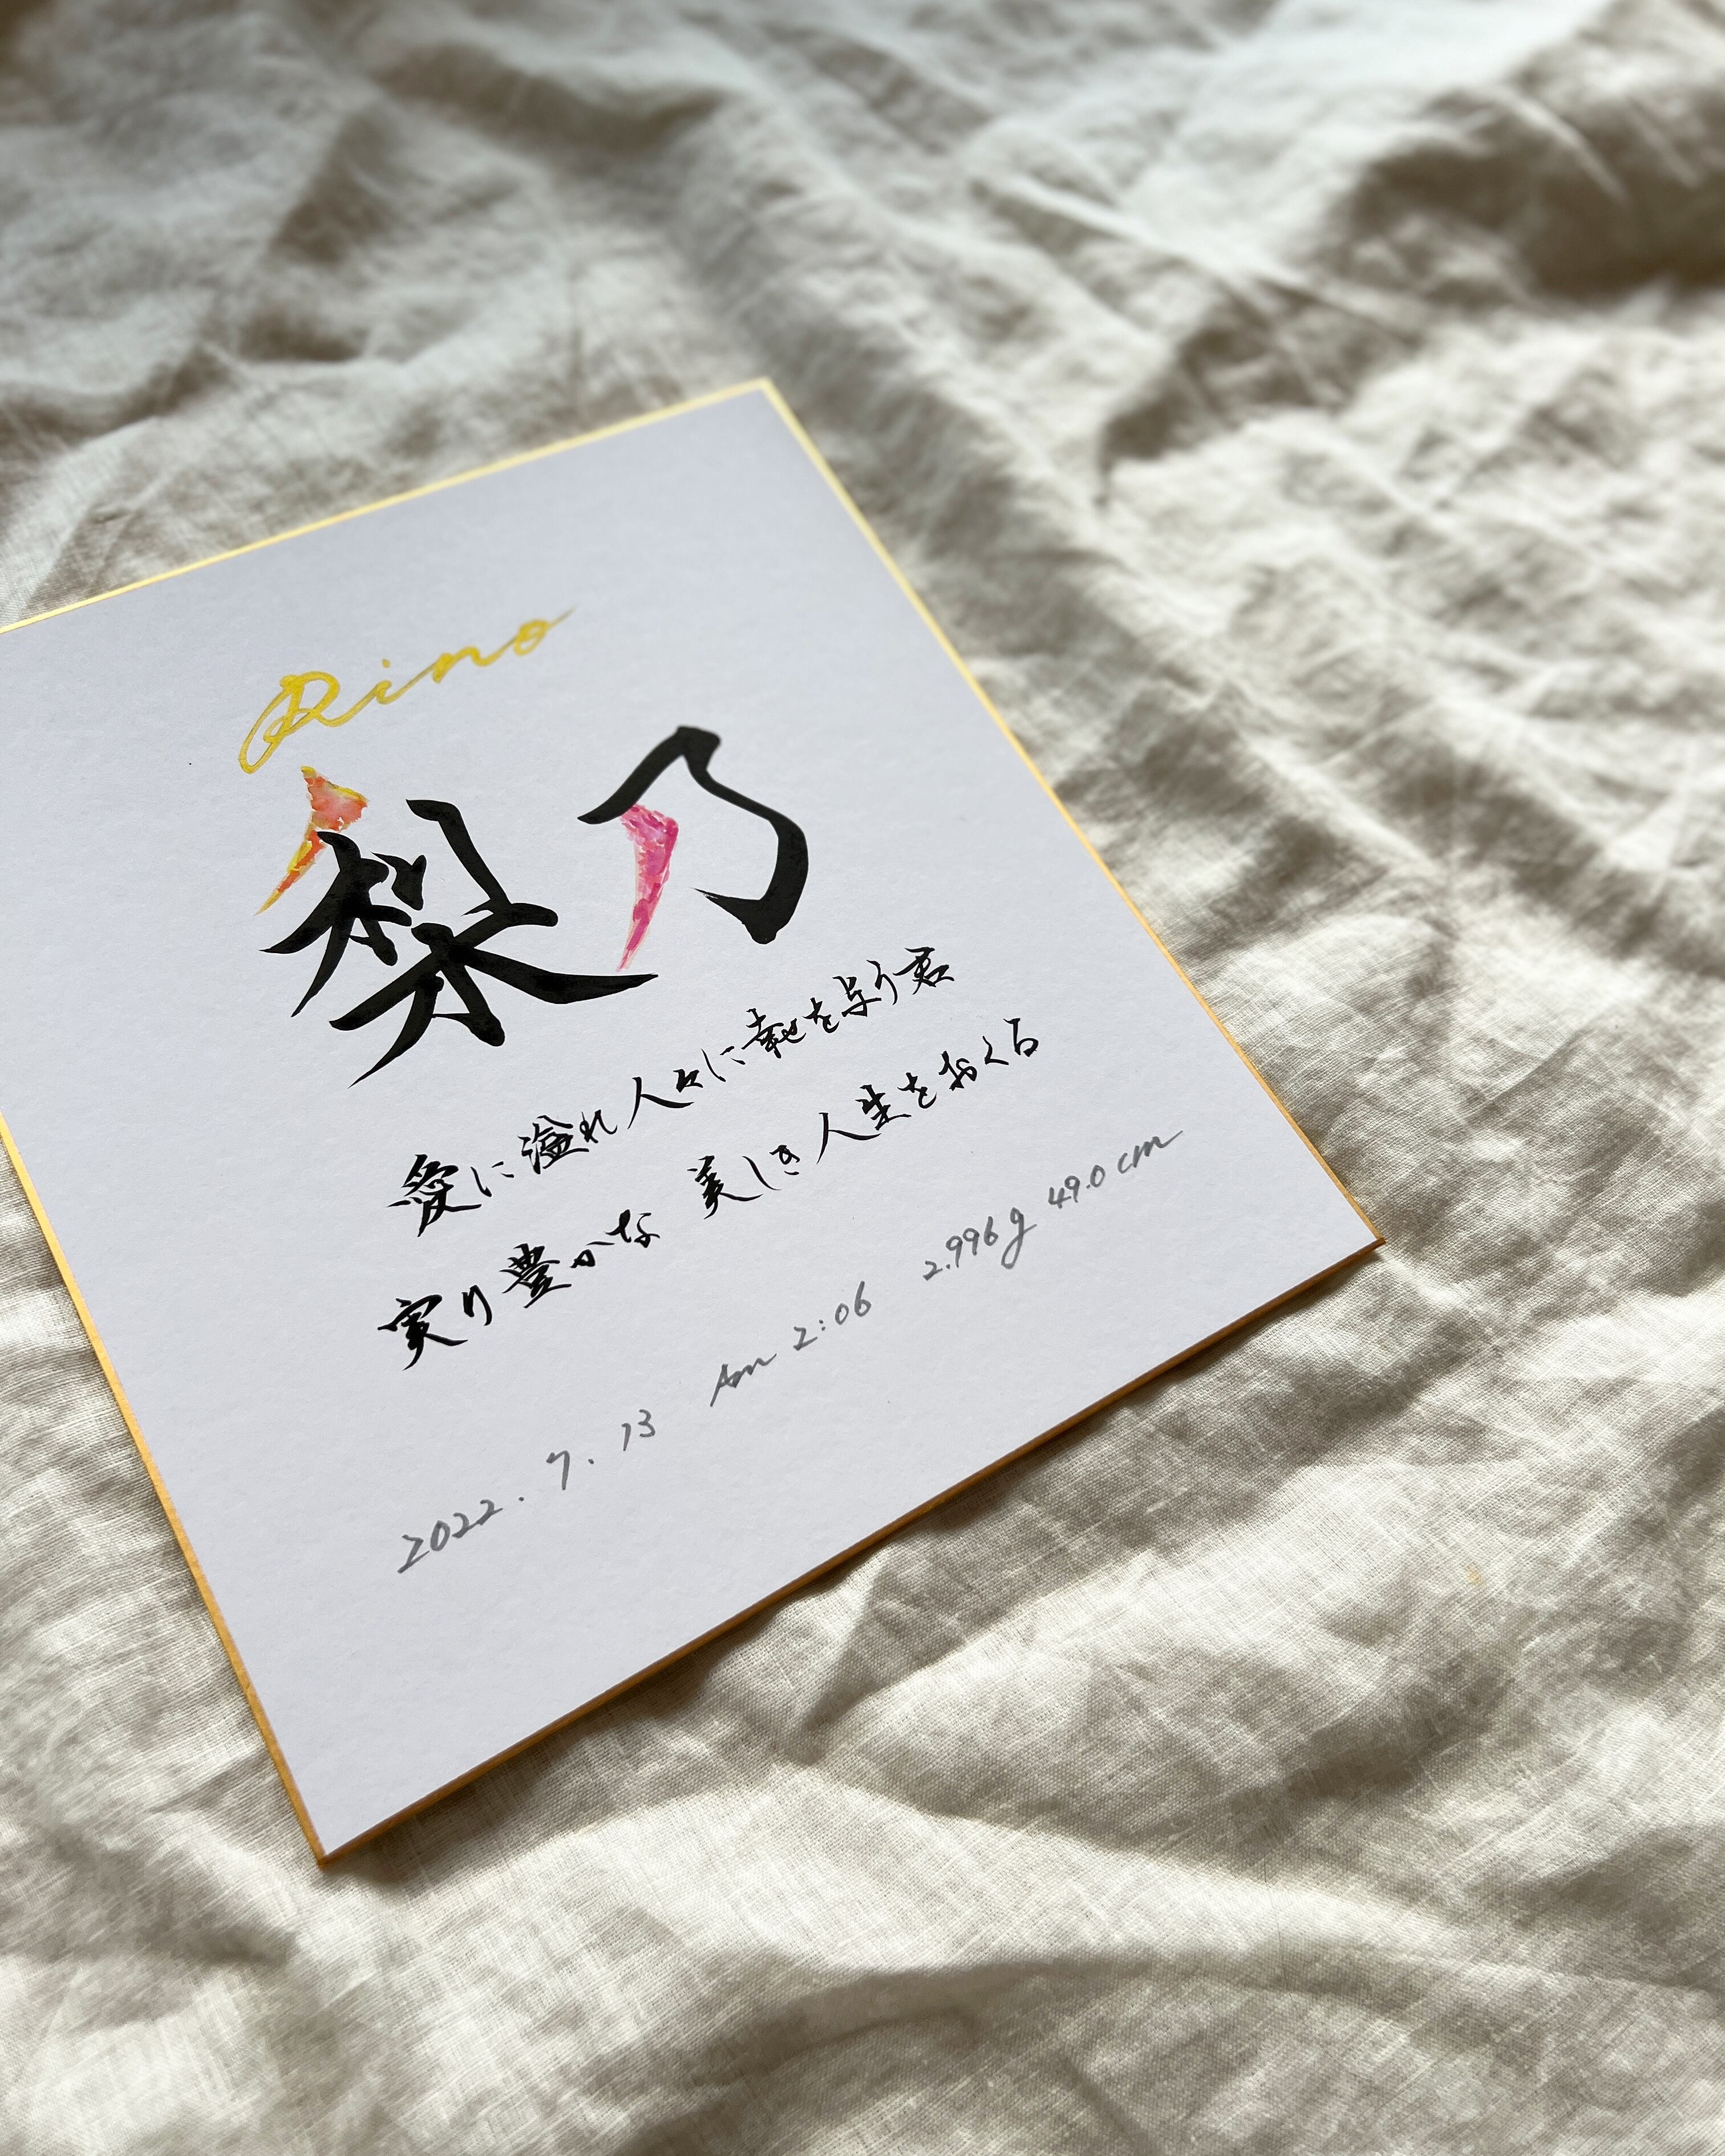 Rino
梨乃
愛に溢れ人々に幸せを与う君
実り豊かな 美しき人生をおくる
2022.7.13 Am 2:06 2.996g 49.0cm